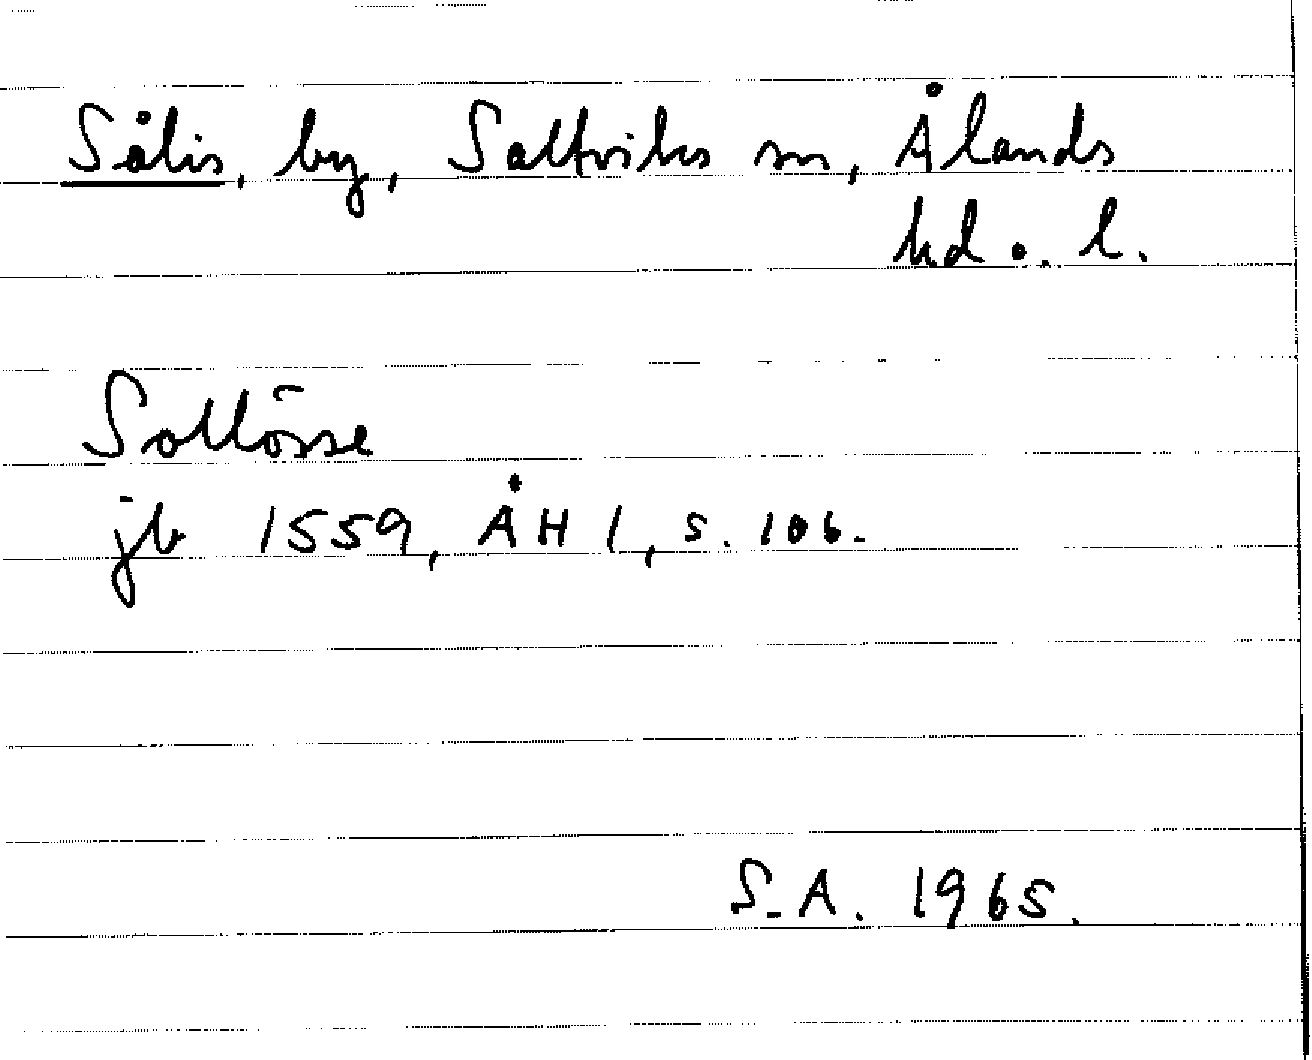 Sålis, by, Saltviks sn, Ålands
hd o. l.
Sollösse
jb 1559, ÅH 1, s. 106.
S.A. 1965.